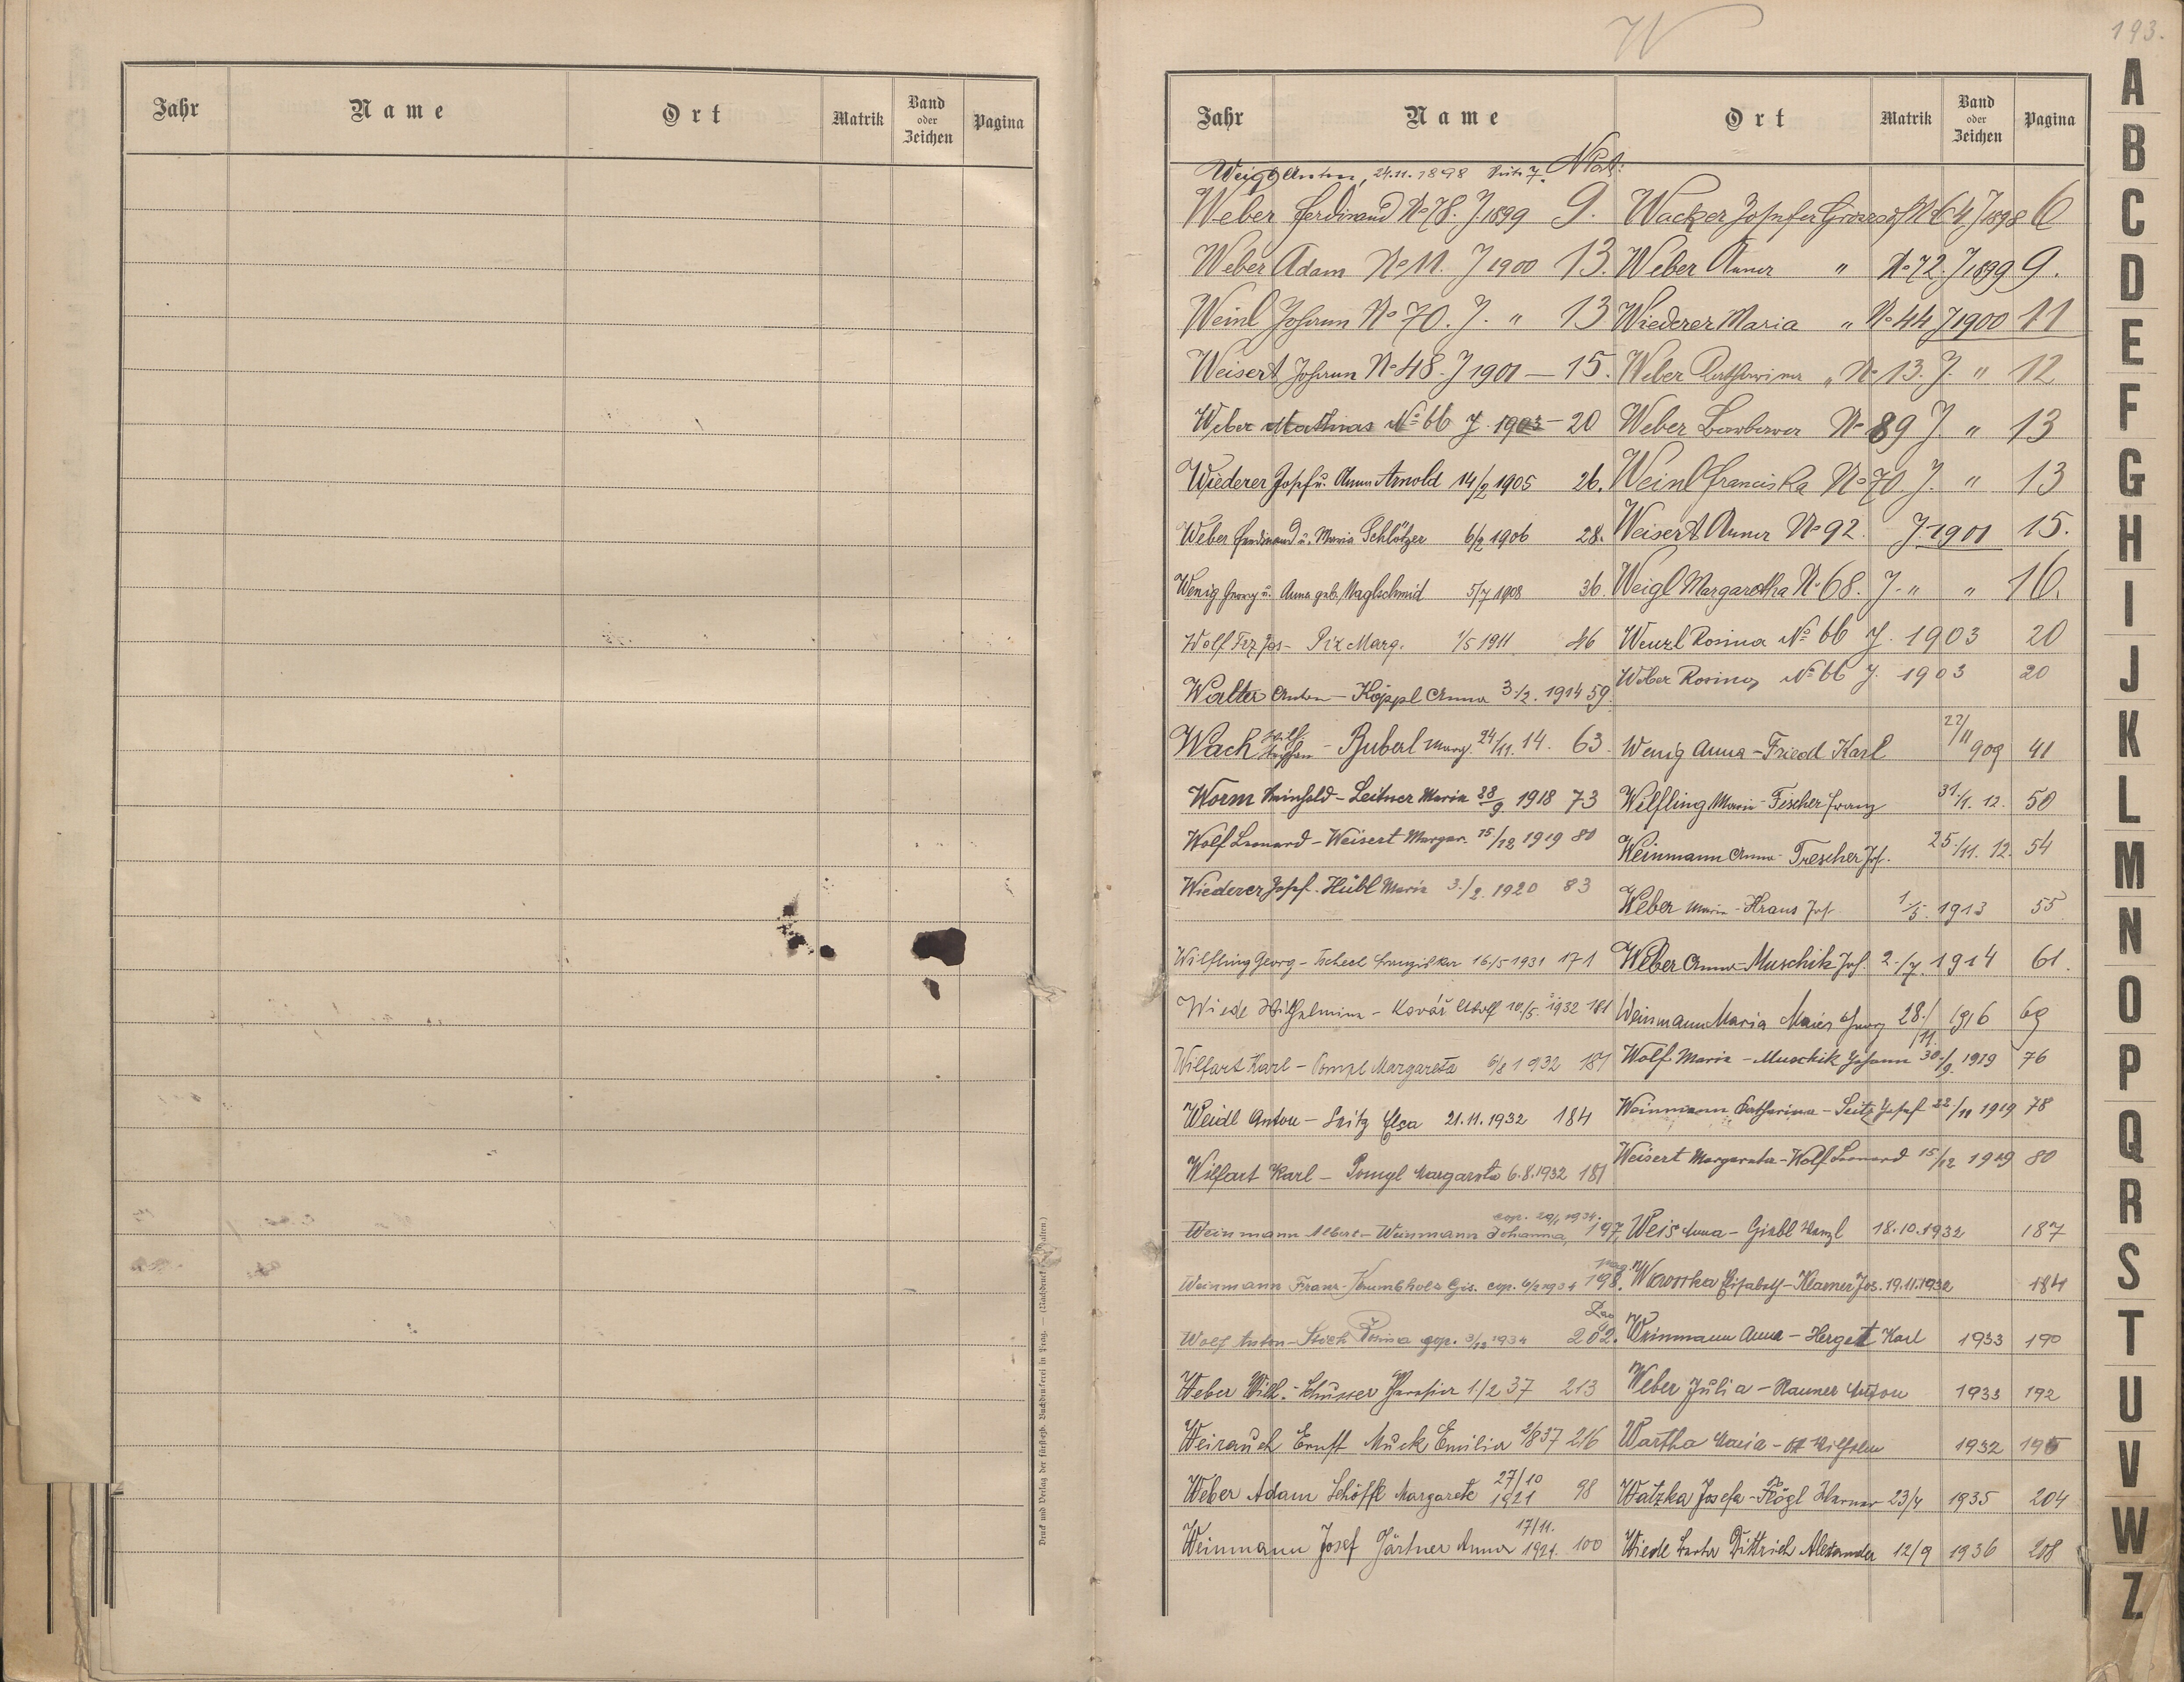 193.
W
Jahr Name Ort Matrik Band oder Zeichen Pagina
Jahr Name Ort Matrik Band oder Zeichen Pagina
Weigl Anton, 24.11.1898 Seite 7.
Weber Ferdinand No 78. J 1899 9.
Weber Adam No 11. J 1900 13.
Weinl Johann No 70. J. " 13
Weisert Johann No 48. J 1901 — 15.
Weber Mathias No 66 J. 1903 — 20
Wiederer Josef u. Anna Arnold 14/2 1905 26.
Weber Ferdinand u. Maria Schlötzer 6/2 1906 28.
Wenig Georg u. Anna geb. Maglschmid 5/7 1908 36.
Wolf Frz Jos - Pix Marg. 1/5 1911 46
Walter Anton — Köppl Anna 3./2. 1914 59.
Wach Stephan - Buberl Marg. 24/11. 14. 63.
Worm Reinhold - Leitner Maria 28/9. 1918 73
Wolf Leonard - Weisert Margar. 15/12 1919 80
Wiederer Josef - Hübl Maria 3./2. 1920 83
Wilfling Georg - Franziska 16/5 1931 171
Wiede Wilhelmine - Kovář Adolf 10./5. 1932 181
Wilfart Karl - Pompl Margareta 6/8 1932 181
Weidl Anton - Seitz Elsa 21.11.1932 184
Wilfart Karl - Margareta 6.8.1932 181
Weinmann Albert - Weinmann Johanna, cop. 1934. 197,
Weinmann Franz - Krumbholz Gis. cop. 6/2 1934 198.
Wolf Anton - Stich Rosina cop. 3/12 1934 202.
Weber Wilh. - Schusser 1./2 37 213
Weirauch Ernst Muck Emilia 2/8 37 216
Weber Adam Schöffl Margarete 27/10 1921 98
Weinmann Josef Gärtner Anna 17/11. 1921. 100
Wacker No 64 J 1898 6
Weber Anna " No 72. J 1899 9.
Wiederer Maria " No 44 J 1900 11
Weber Katharina " No 13. J. " 12
Weber Barbara No 89 J. " 13
Weinl Franciska No 70. J. " 13
Weisert Anna No 92. J. 1901 15.
Weigl Margaretha No 68. J. " " 16.
Wenzl Rosina No 66 J. 1903 20
Weber Rosina No 66 J. 1903 20
Wenig Anna - Friedl Karl 22/11 909 41
Wilfling Marie - Fischer Franz 31./1. 12. 50
Weinmann Anna - Trescher Jos. 25./11. 12. 54
Weber Maria - Kraus Jos. 1./5. 1913 55
Weber Anna - Muschik Jos. 2./7. 1914 61.
Weinmann Maria Maier Georg 28./11. 1916 69
Wolf Maria - Muschik Johann 30./9. 1919 76
Weinmann Katharina - Seitz Josef 22/11 1919 78
Weisert Margareta - Wolf Leonard 15/12 1919 80
Weis Anna - Giebl Wenzl 18.10.1932 187
Elisabeth - Jos. 19.11.1932 184
Weinmann Anna - Herget Karl 1933 190
Weber Julia - Anton 1933 192
Wartha Maria - Ott Wilhelm 1932 195
Watzka Josefa - Flögl Werner 23/4 1935 204
Wiedl Dittrich Alexander 12/9 1936 208
Druck und Verlag der fürsterzb. Buchdruckerei in Prag. — (Nachdruck vorbehalten.)
A
B
C
D
E
F
G
H
I
J
K
L
M
N
O
P
Q
R
S
T
U
V
W
Z